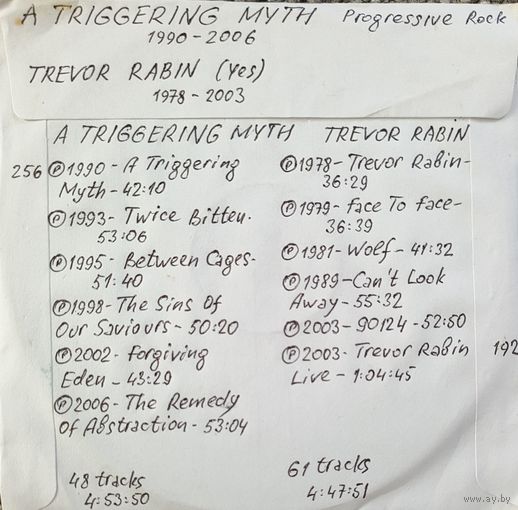 A TRIGGERING MYTH Progressive Rock
1990-2006
TREVOR RABIN (Yes)
1978-2003
A TRIGGERING MYTH
256 ℗1990-A Triggering
Myth-42:10
℗1993-Twice Bitten.
53:06
℗1995-Between Cages-
51:40
℗1998-The Sins Of
Our Saviours-50:20
℗2002-Forgiving
Eden-43:29
℗2006-The Remedy
of Abstraction-53:04
48 tracks
4:53:50
TREVOR RABIN
℗1978-Trevor Rabin-
36:29
℗1979-Face To Face-
36:39
℗1981-Wolf-41:32
℗1989-Can't Look
Away-55:32
℗2003-90124-52:50
℗2003-Trevor Rabin 192
Live-1:04:45
61 tracks
4:47:51
www.ay.by